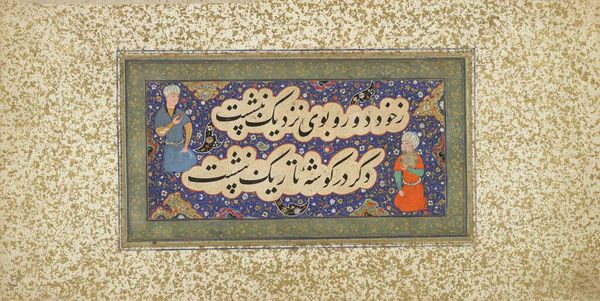 ز خود دور و بوی نزدیک نشست
دگر در گوشهٔ تاریک نشست